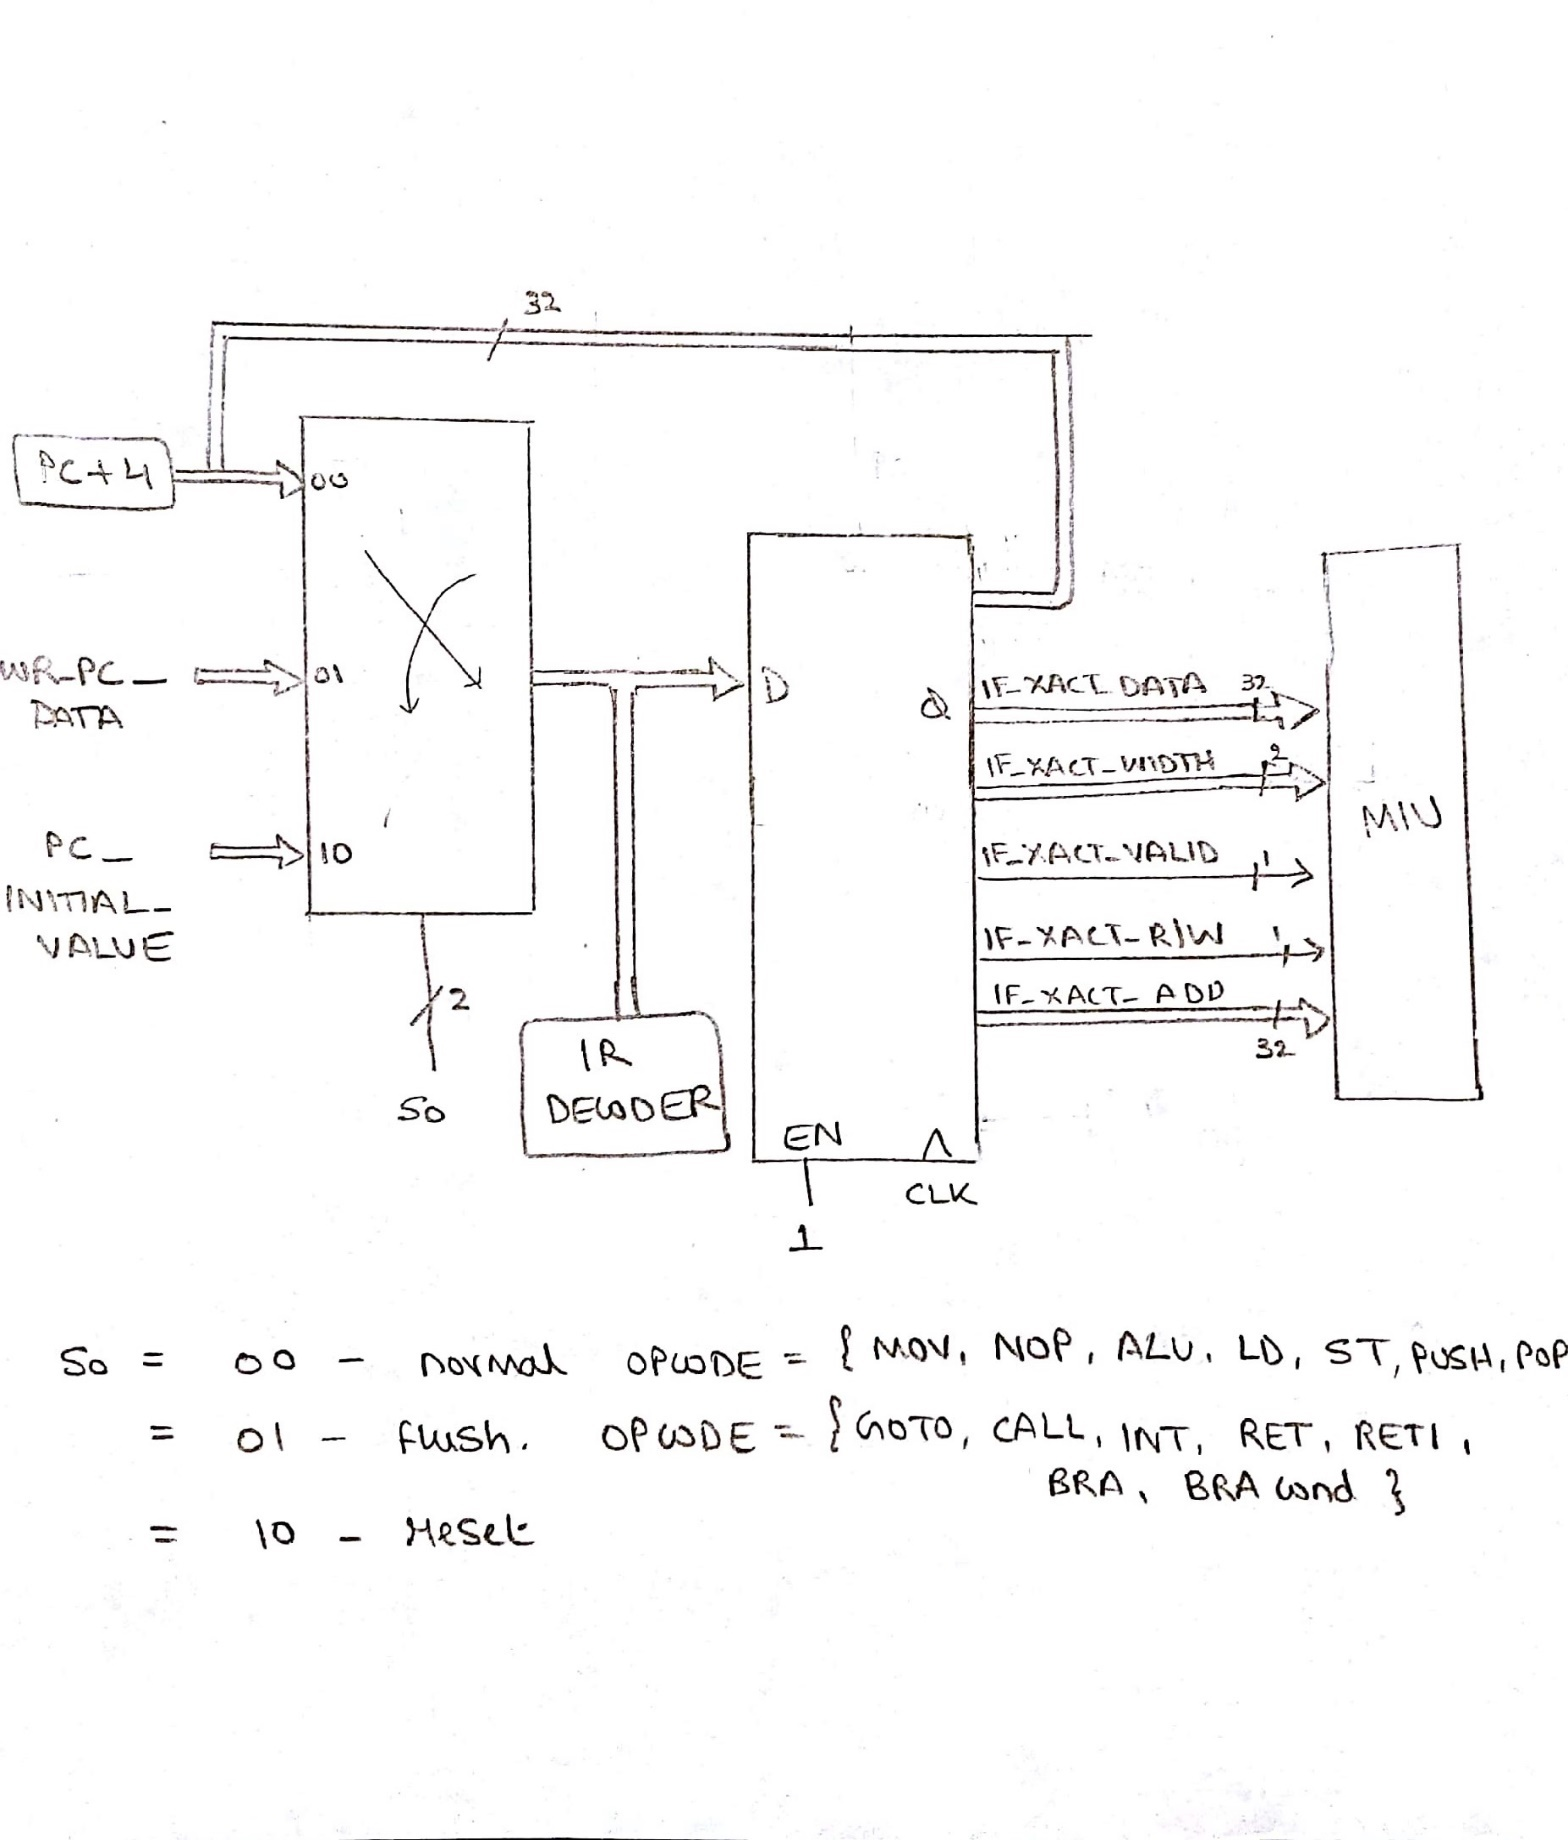 32
PC+4
00
WR_PC_
DATA
01
PC_
INITIAL_
VALUE
10
2
S0
IR
DECODER
D
Q
EN
1
CLK
IF_XACT_DATA 32
IF_XACT_WIDTH 2
IF_XACT_VALID 1
IF_XACT_R/W 1
IF_XACT_ADD
32
MIU
S0 = 00 - normal OPCODE = { MOV, NOP, ALU, LD, ST, PUSH, POP
= 01 - flush. OPCODE = { GOTO, CALL, INT, RET, RETI,
BRA, BRA cond }
= 10 - reset